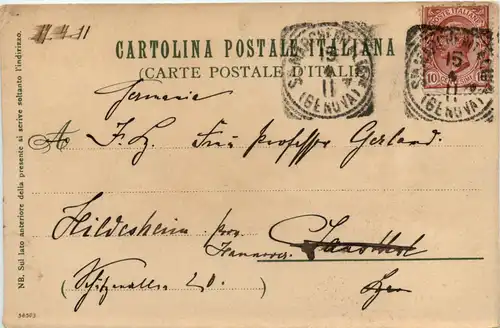 11.4.11
CARTOLINA POSTALE ITALIANA
(CARTE POSTALE D'ITALIE)
POSTE ITALIANE
10
15
4
11
(GENOVA)
15
4
11
(GENOVA)
Germania
A F. H. Frau Professor Gerland.
Hildesheim Prov.
Hannover.
(Schützenallee 20.)
NB. Sul lato anteriore della presente si scrive soltanto l'indirizzo.